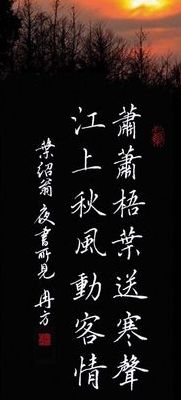 蕭蕭梧葉送寒聲
江上秋風動客情
葉紹翁 夜書所見 冉方